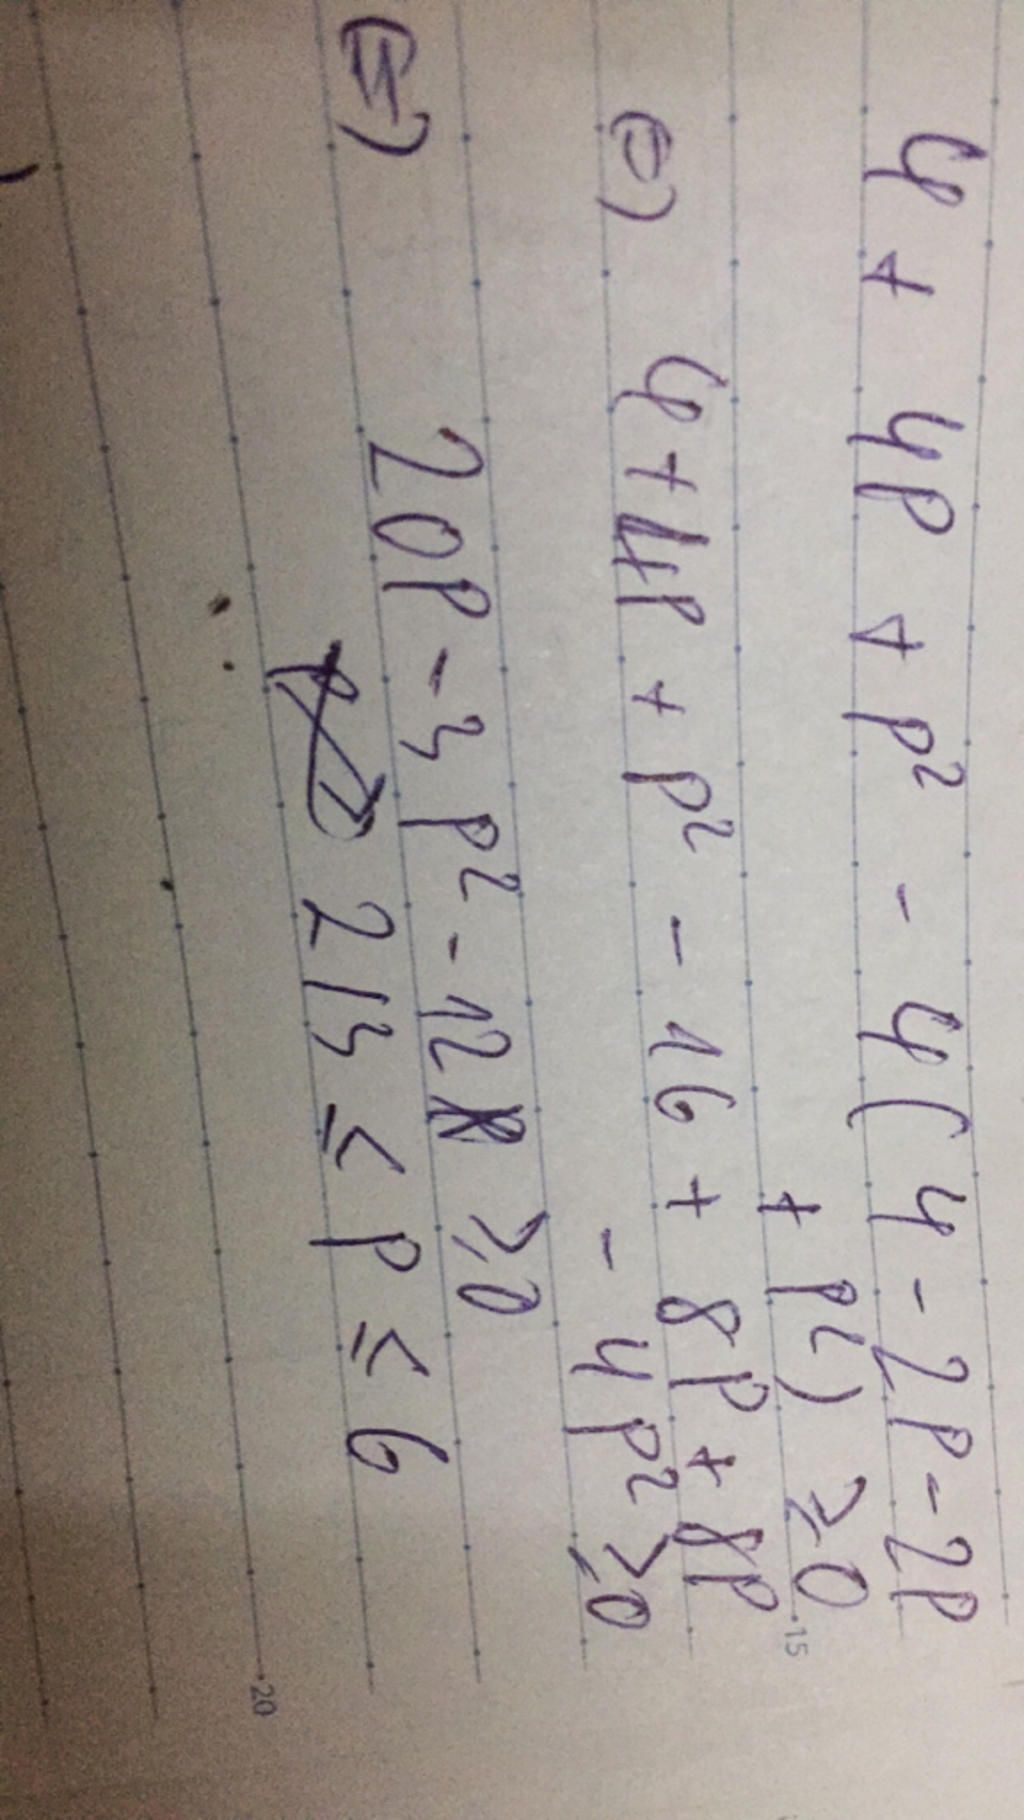 4 + 4P + P² - 4(4 - 2P - 2P
+ P²) ≥ 0
15
⇔) 4 + 4P + P² - 16 + 8P + 8P
- 4P² ≥ 0
⇔) 20P - 3P² - 12 ≥ 0
2/3 ≤ P ≤ 6
20